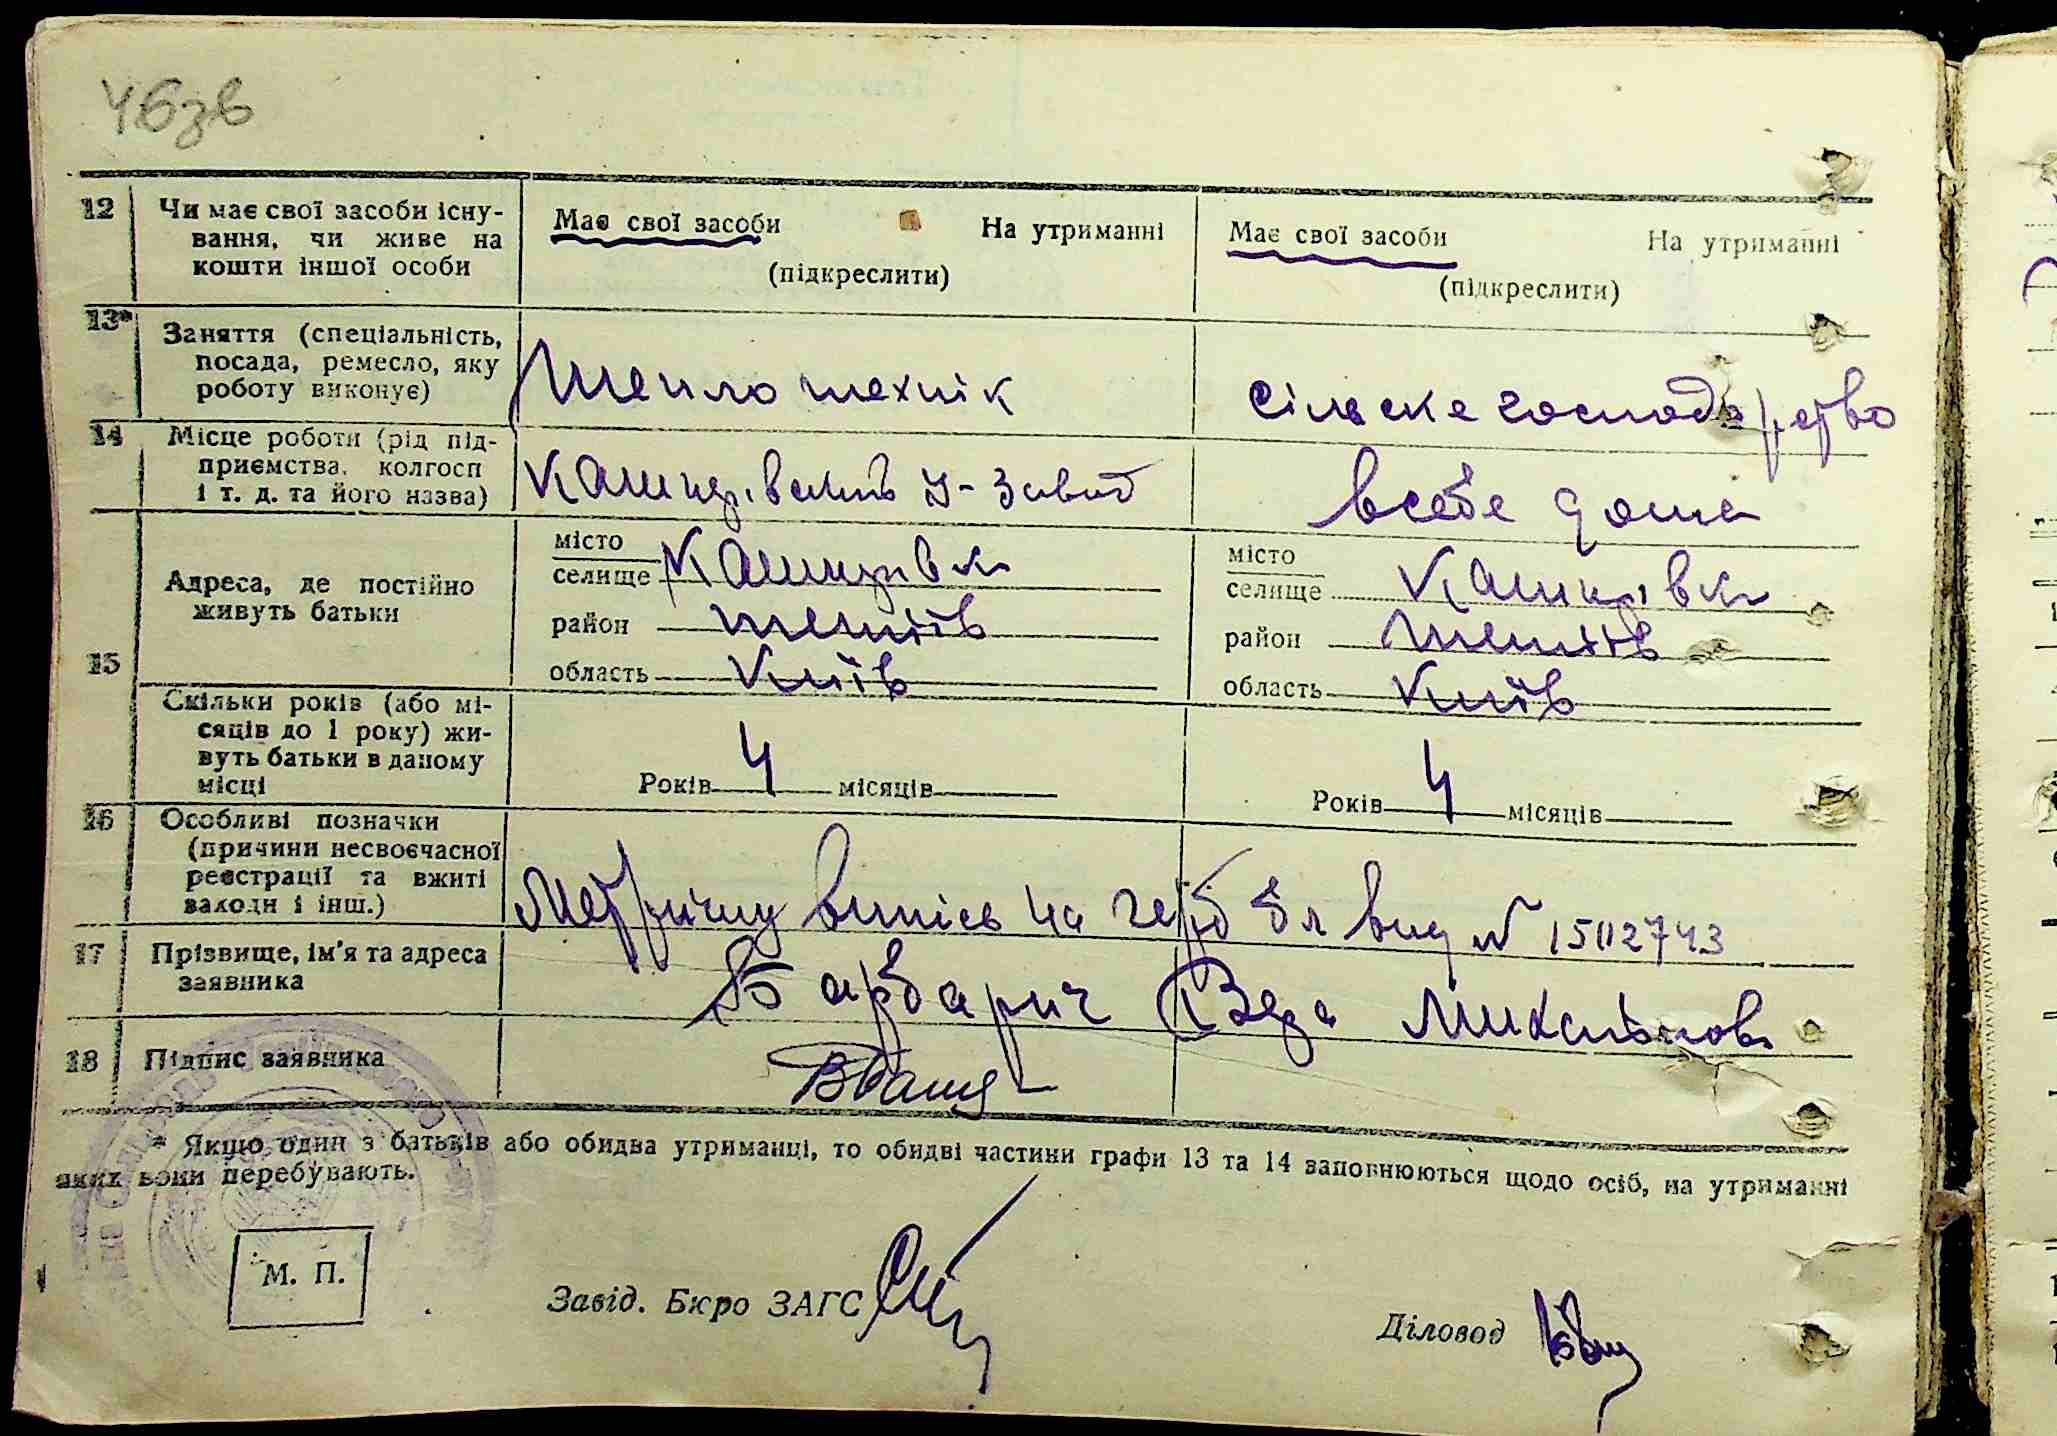 46зв
12 Чи має свої засоби існу-
вання, чи живе на
кошти іншої особи
Має свої засоби На утриманні
(підкреслити)
Має свої засоби На утриманні
(підкреслити)
13* Заняття (спеціальність,
посада, ремесло, яку
роботу виконує)
Теплотехнік
сільське господарство
14 Місце роботи (рід під-
приємства, колгосп
і т. д. та його назва)
завод
в себе дома
15 Адреса, де постійно
живуть батьки
місто
селище
район Тетіїв
область Київ
місто
селище
район Тетіїв
область Київ
Скільки років (або мі-
сяців до 1 року) жи-
вуть батьки в даному
місці
Років 4 місяців
Років 4 місяців
16 Особливі позначки
(причини несвоєчасної
реєстрації та вжиті
заходи і інш.)
Метричну випись на герб бл вид № 1502743
17 Прізвище, ім'я та адреса
заявника
Барбарич
18 Підпис заявника
* Якщо один з батьків або обидва утриманці, то обидві частини графи 13 та 14 заповнюються щодо осіб, на утриманні
яких вони перебувають.
М. П.
Завід. Бюро ЗАГС
Діловод